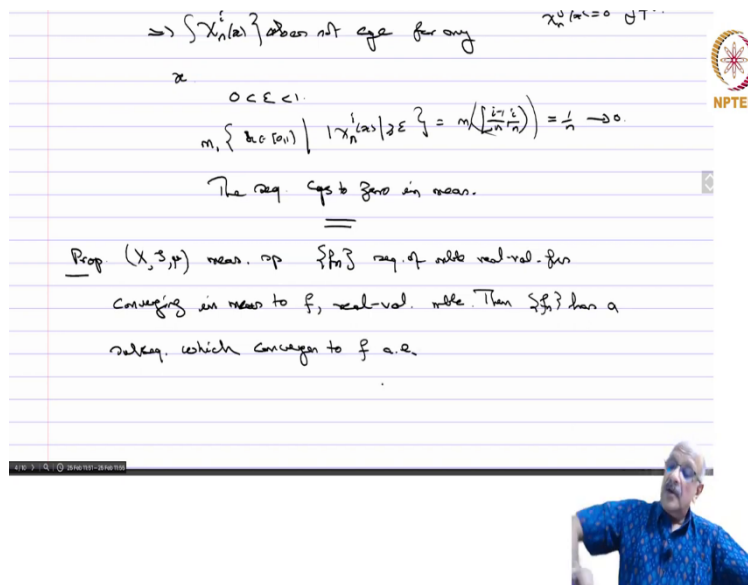 χₙʲ(x)=0
⇒ {χₙⁱ(x)} does not cge for any
NPTE
x
0<ε<1.
m₁{x∈[0,1) | |χₙⁱ(x)|≥ε} = m₁([i-1/n, i/n)) = 1/n → 0.
The seq. cgs to zero in meas.
Prop. (X, S, μ) meas. sp {fₙ} seq. of mble real-val. fns
converging in meas to f, real-val. mble. Then {fₙ} has a
subseq. which converges to f a.e.
4/10
26 Feb 11:51 - 26 Feb 11:55